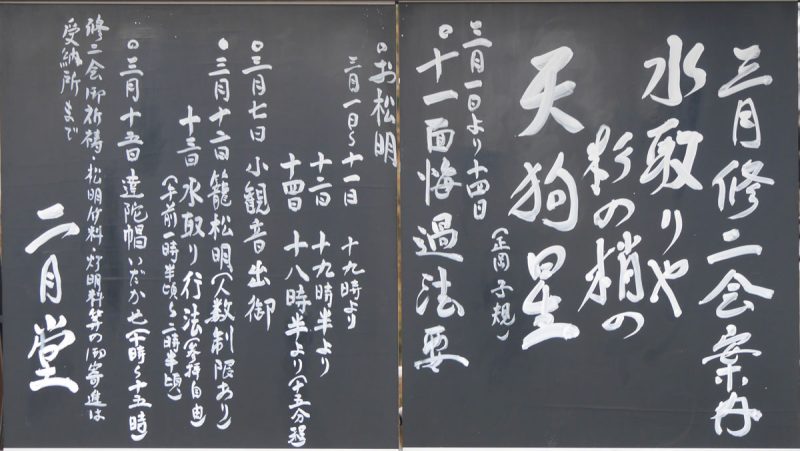 三月修二会案内
水取りや
杉の梢の
天狗星
(正岡子規)
三月一日より十四日
◦十一面悔過法要
◦お松明
三月一日〜十一日 十九時より
十三日 十九時半より
十四日 十八時半より(十五分程)
◦三月七日 小観音出御
◦三月十二日 籠松明(人数制限あり)
十三日 水取り行法(参拝自由)
(午前一時半頃〜二時半頃)
◦三月十五日 達陀帽いただかせ(十時〜十五時)
修二会御祈祷・松明竹料・灯明料等の御寄進は
受納所まで
二月堂